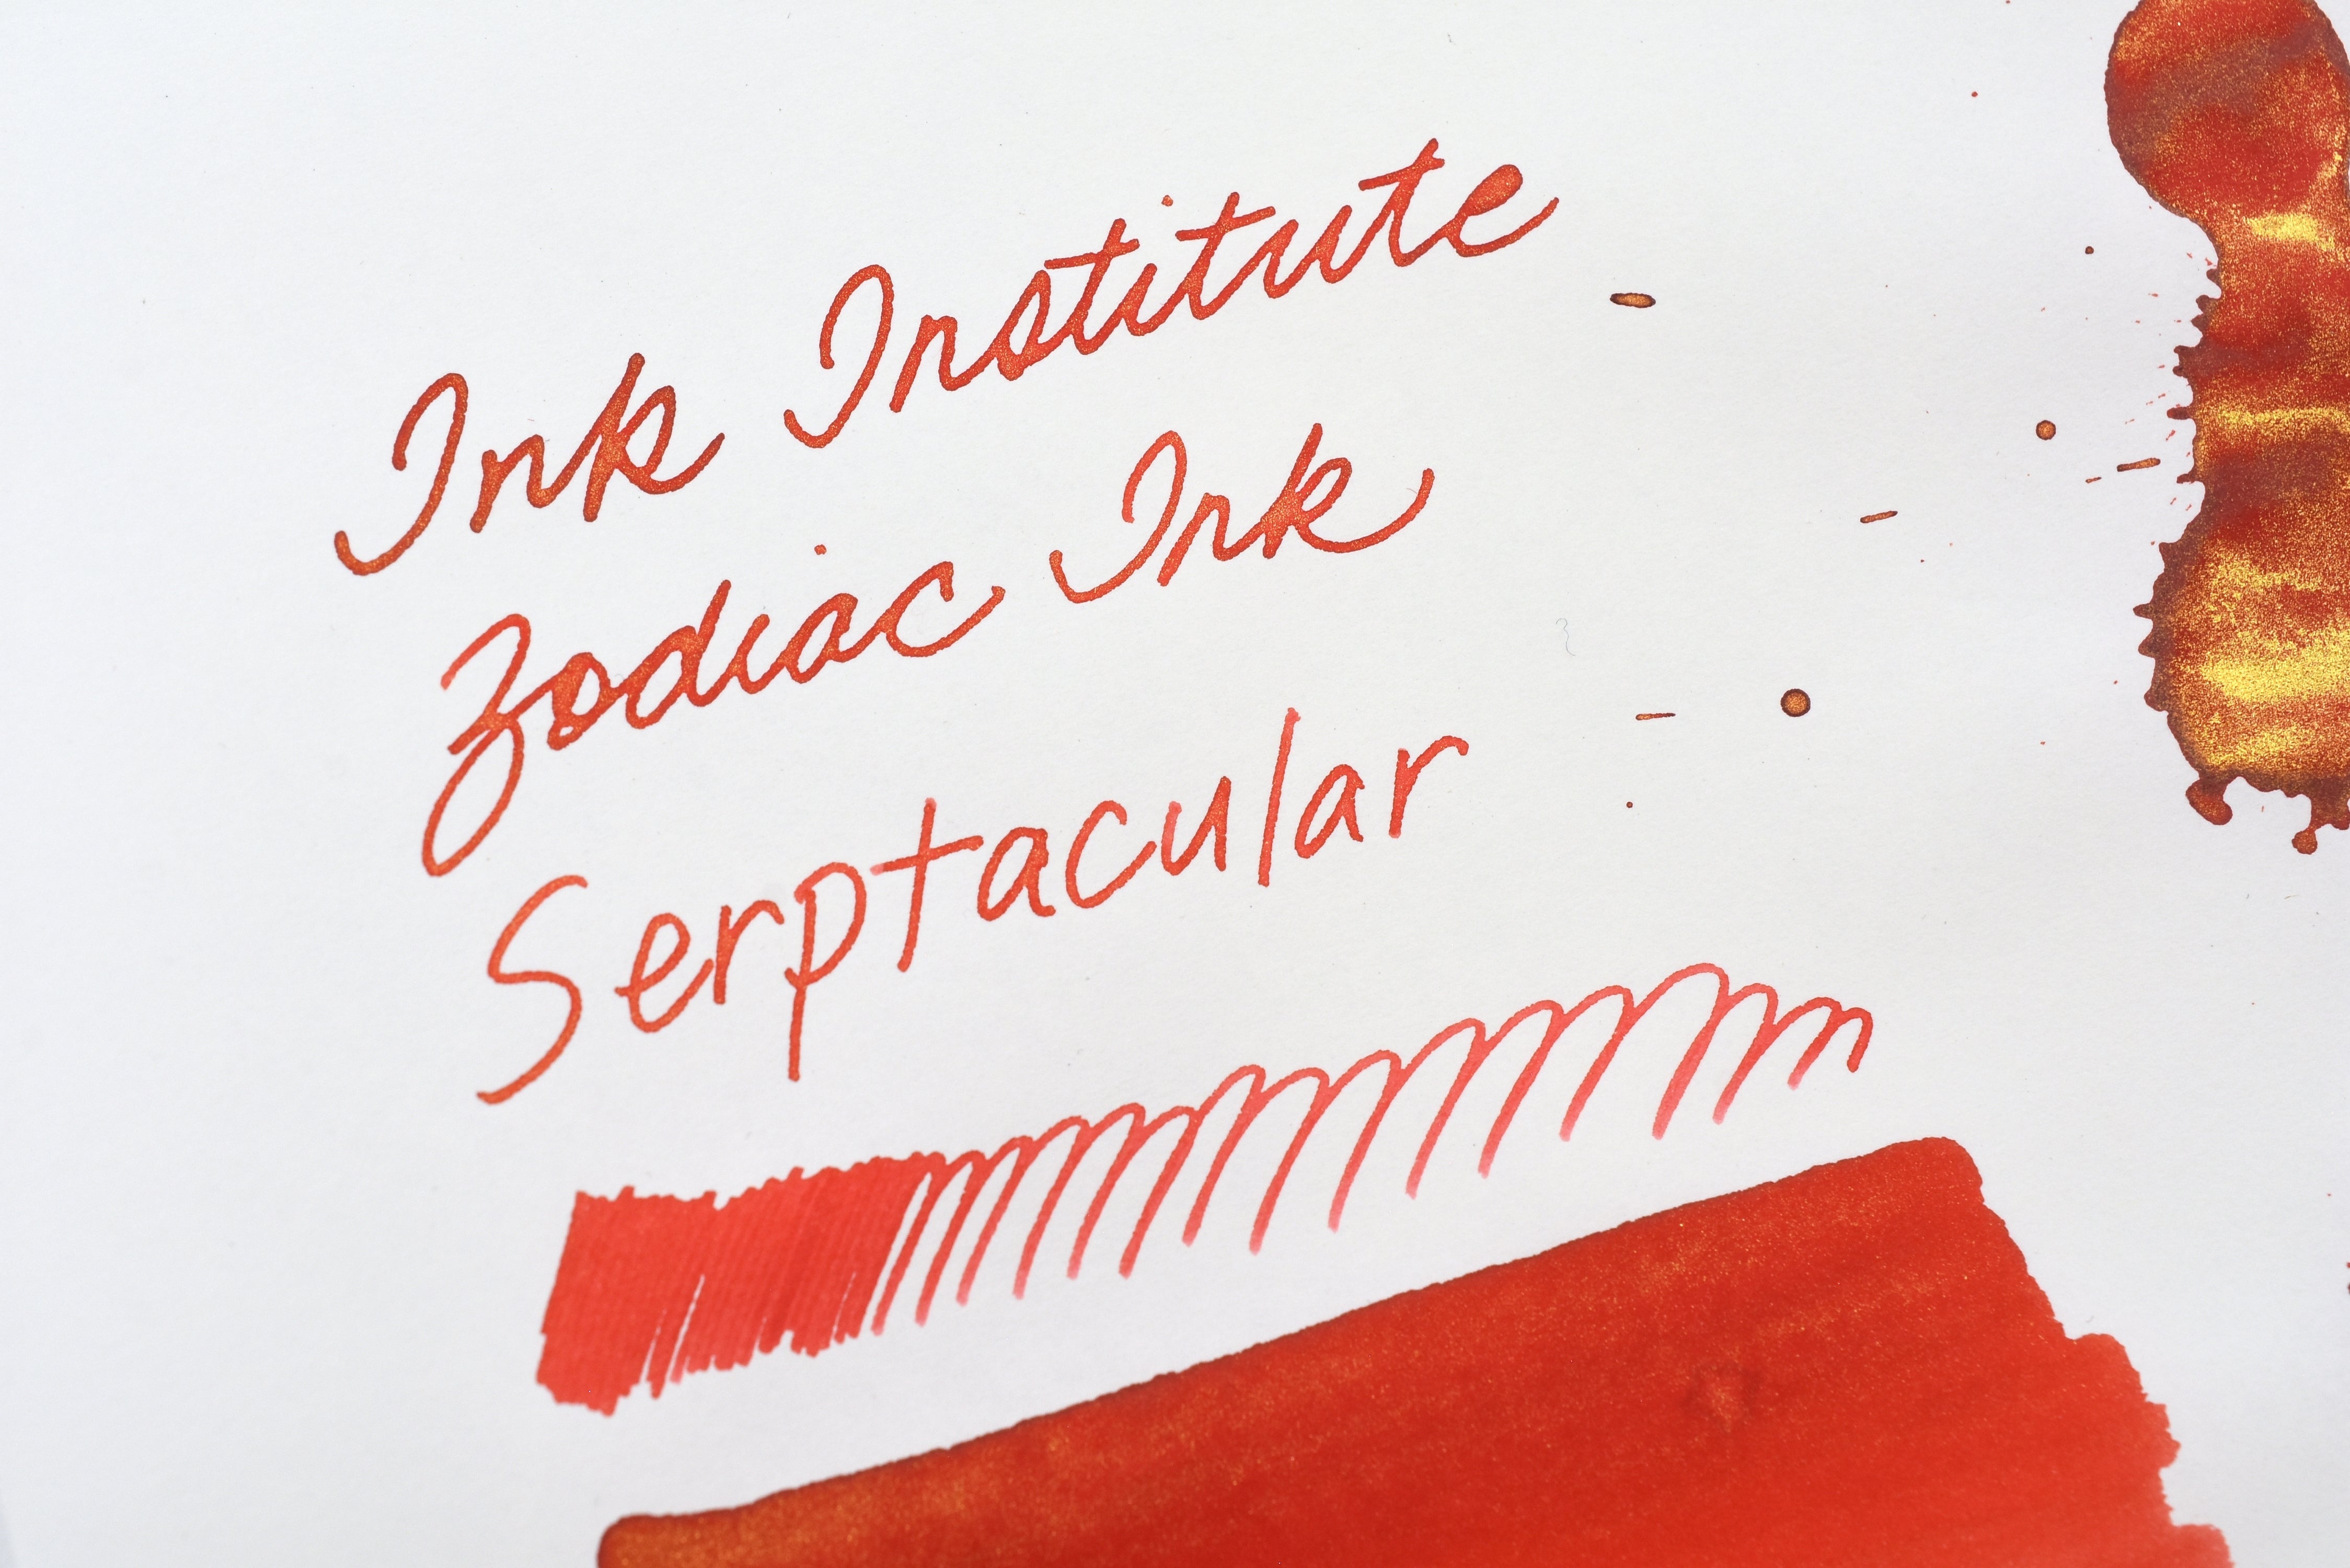 Ink Institute
Zodiac Ink
Serptacular